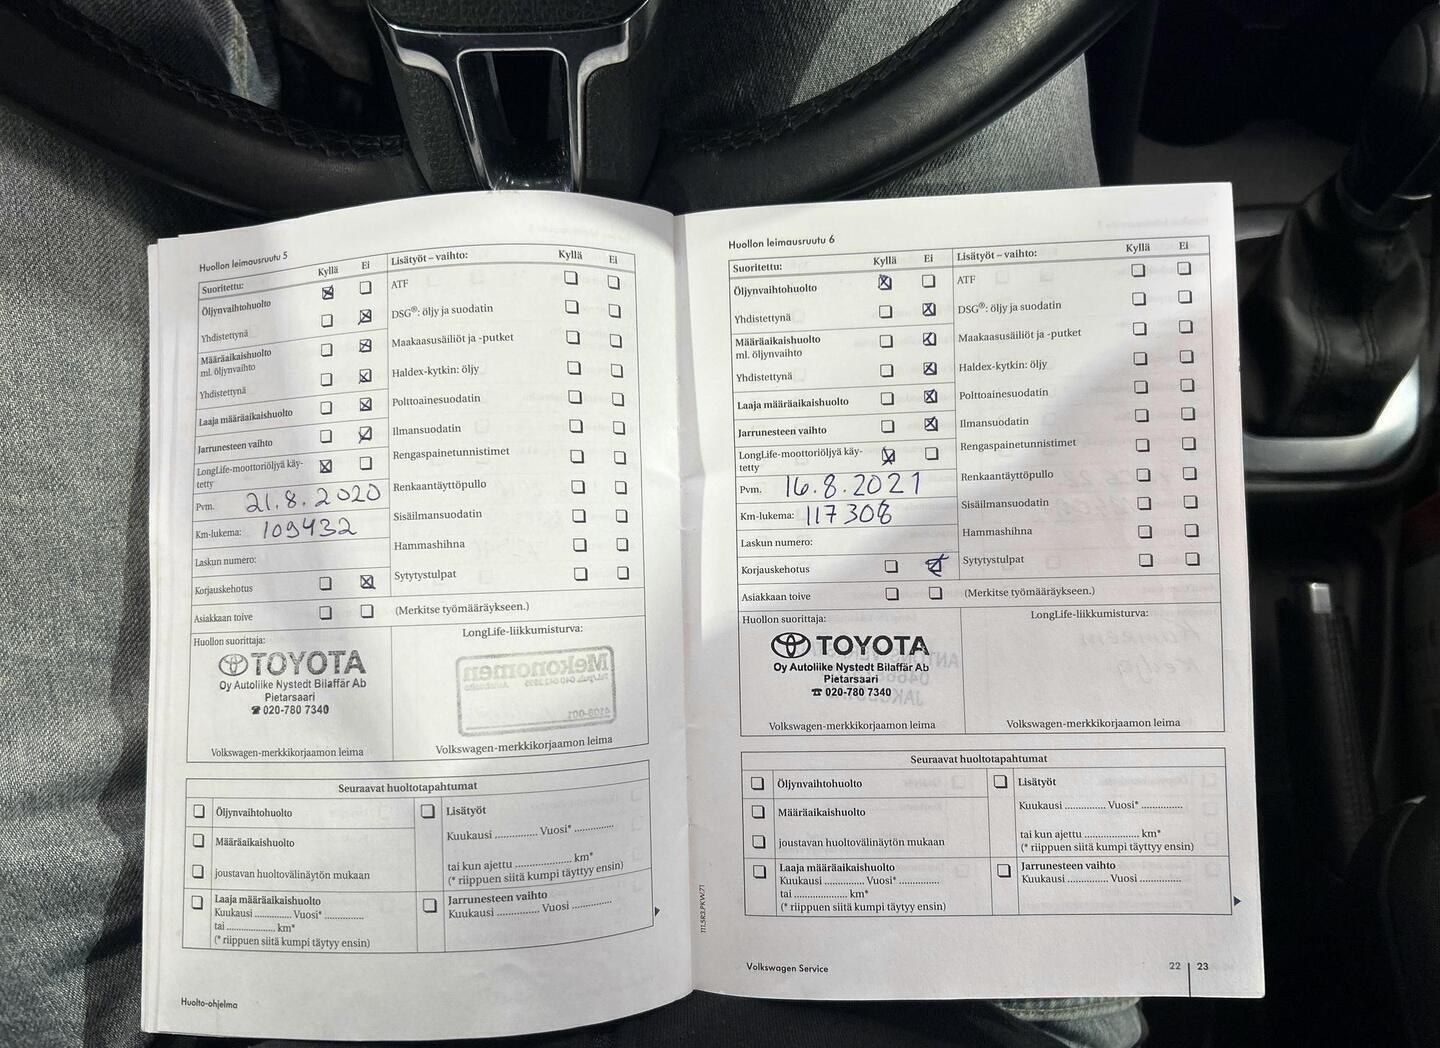 Huollon leimausruutu 5
Suoritettu: Kyllä Ei
Öljynvaihtohuolto
Yhdistettynä
Määräaikaishuolto
ml. öljynvaihto
Yhdistettynä
Laaja määräaikaishuolto
Jarrunesteen vaihto
LongLife-moottoriöljyä käy-
tetty
Pvm. 21.8.2020
Km-lukema: 109432
Laskun numero:
Korjauskehotus
Asiakkaan toive
Lisätyöt – vaihto: Kyllä Ei
ATF
DSG®: öljy ja suodatin
Maakaasusäiliöt ja -putket
Haldex-kytkin: öljy
Polttoainesuodatin
Ilmansuodatin
Rengaspainetunnistimet
Renkaantäyttöpullo
Sisäilmansuodatin
Hammashihna
Sytytystulpat
(Merkitse työmääräykseen.)
Huollon suorittaja:
TOYOTA
Oy Autoliike Nystedt Bilaffär Ab
Pietarsaari
☎ 020-780 7340
Volkswagen-merkkikorjaamon leima
LongLife-liikkumisturva:
Mekonomen
Volkswagen-merkkikorjaamon leima
Seuraavat huoltotapahtumat
Öljynvaihtohuolto
Määräaikaishuolto
joustavan huoltovälinäytön mukaan
Laaja määräaikaishuolto
Kuukausi .............. Vuosi* ..............
tai .................... km*
(* riippuen siitä kumpi täytyy ensin)
Lisätyöt
Kuukausi .............. Vuosi* ..............
tai kun ajettu .................... km*
(* riippuen siitä kumpi täyttyy ensin)
Jarrunesteen vaihto
Kuukausi .............. Vuosi ..............
Huolto-ohjelma
Huollon leimausruutu 6
Suoritettu: Kyllä Ei
Öljynvaihtohuolto
Yhdistettynä
Määräaikaishuolto
ml. öljynvaihto
Yhdistettynä
Laaja määräaikaishuolto
Jarrunesteen vaihto
LongLife-moottoriöljyä käy-
tetty
Pvm. 16.8.2021
Km-lukema: 117308
Laskun numero:
Korjauskehotus
Asiakkaan toive
Lisätyöt – vaihto: Kyllä Ei
ATF
DSG®: öljy ja suodatin
Maakaasusäiliöt ja -putket
Haldex-kytkin: öljy
Polttoainesuodatin
Ilmansuodatin
Rengaspainetunnistimet
Renkaantäyttöpullo
Sisäilmansuodatin
Hammashihna
Sytytystulpat
(Merkitse työmääräykseen.)
Huollon suorittaja:
TOYOTA
Oy Autoliike Nystedt Bilaffär Ab
Pietarsaari
☎ 020-780 7340
Volkswagen-merkkikorjaamon leima
LongLife-liikkumisturva:
Volkswagen-merkkikorjaamon leima
Seuraavat huoltotapahtumat
Öljynvaihtohuolto
Määräaikaishuolto
joustavan huoltovälinäytön mukaan
Laaja määräaikaishuolto
Kuukausi .............. Vuosi* ..............
tai .................... km*
(* riippuen siitä kumpi täyttyy ensin)
Lisätyöt
Kuukausi .............. Vuosi* ..............
tai kun ajettu .................... km*
(* riippuen siitä kumpi täyttyy ensin)
Jarrunesteen vaihto
Kuukausi .............. Vuosi ..............
Volkswagen Service
22 | 23